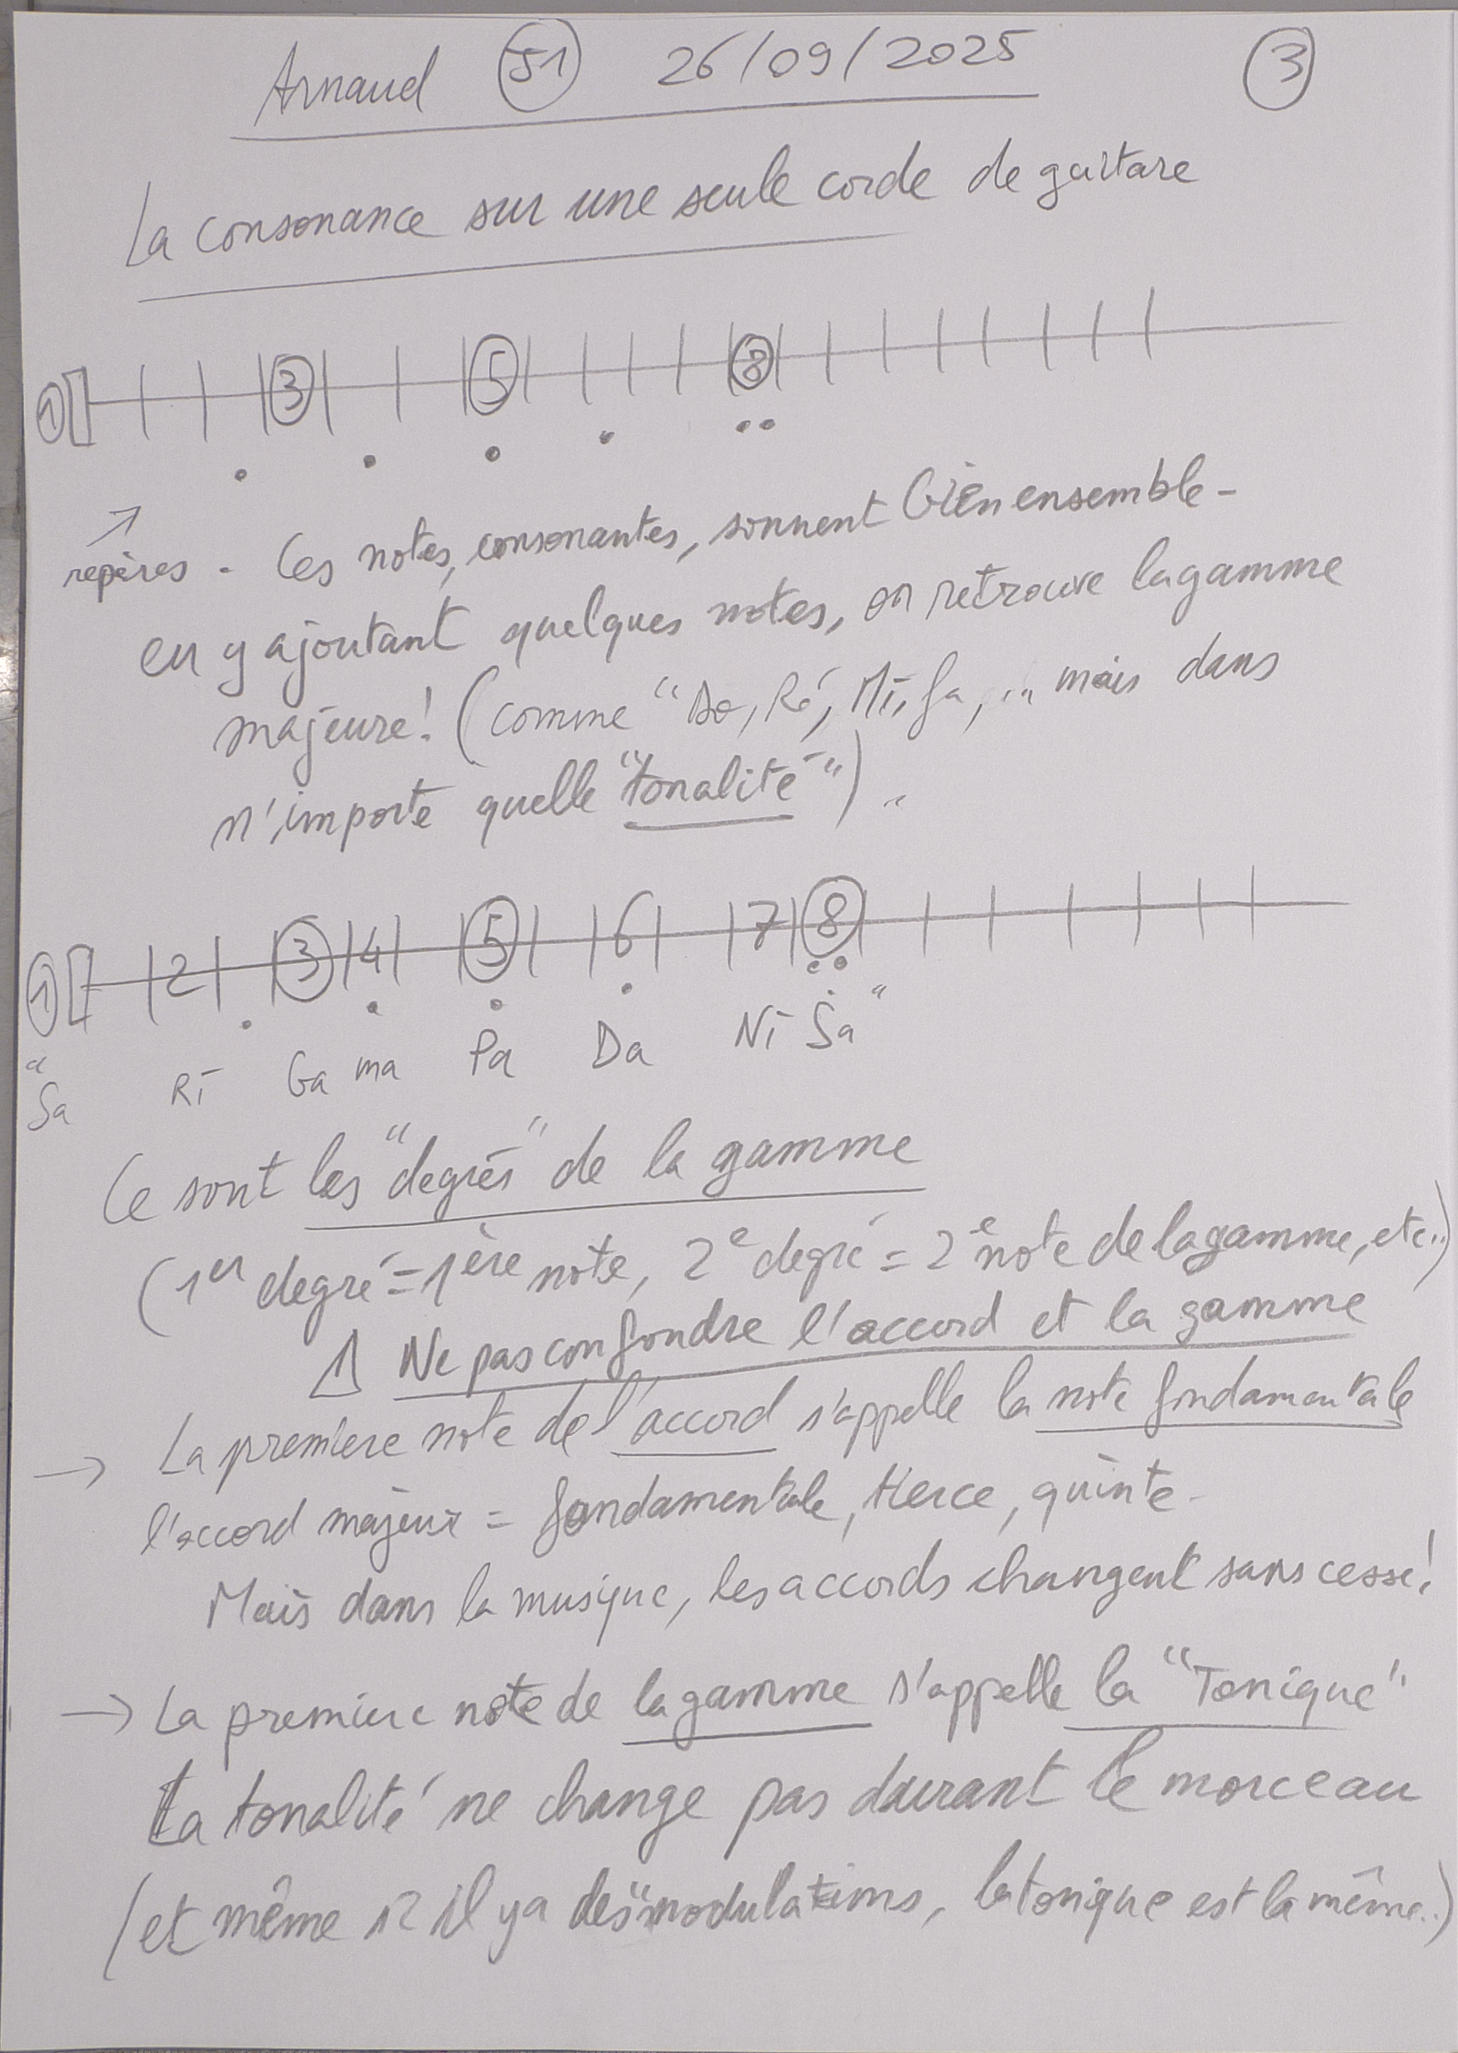 Arnaud 51 26/09/2025 3
La consonance sur une seule corde de guitare
1 3 5 8
repères . Ces notes, consonantes, sonnent bien ensemble -
en y ajoutant quelques notes, on retrouve la gamme
majeure! (comme "Do, Ré, Mi, fa, ... mais dans
n'importe quelle "tonalité") ..
1 2 3 4 5 6 7 8
"Sa Ri Ga ma Pa Da Ni Ṡa"
Ce sont les "degrés" de la gamme
(1er degré = 1ère note, 2e degré = 2e note de la gamme, etc..)
⚠ Ne pas confondre l'accord et la gamme
→ La première note de l'accord s'appelle la note fondamentale
l'accord majeur = fondamentale, tierce, quinte -
Mais dans la musique, les accords changent sans cesse!
→ La première note de la gamme s'appelle la "Tonique"
La tonalité ne change pas durant le morceau
(et même si il y a des "modulations, la tonique est la même..)